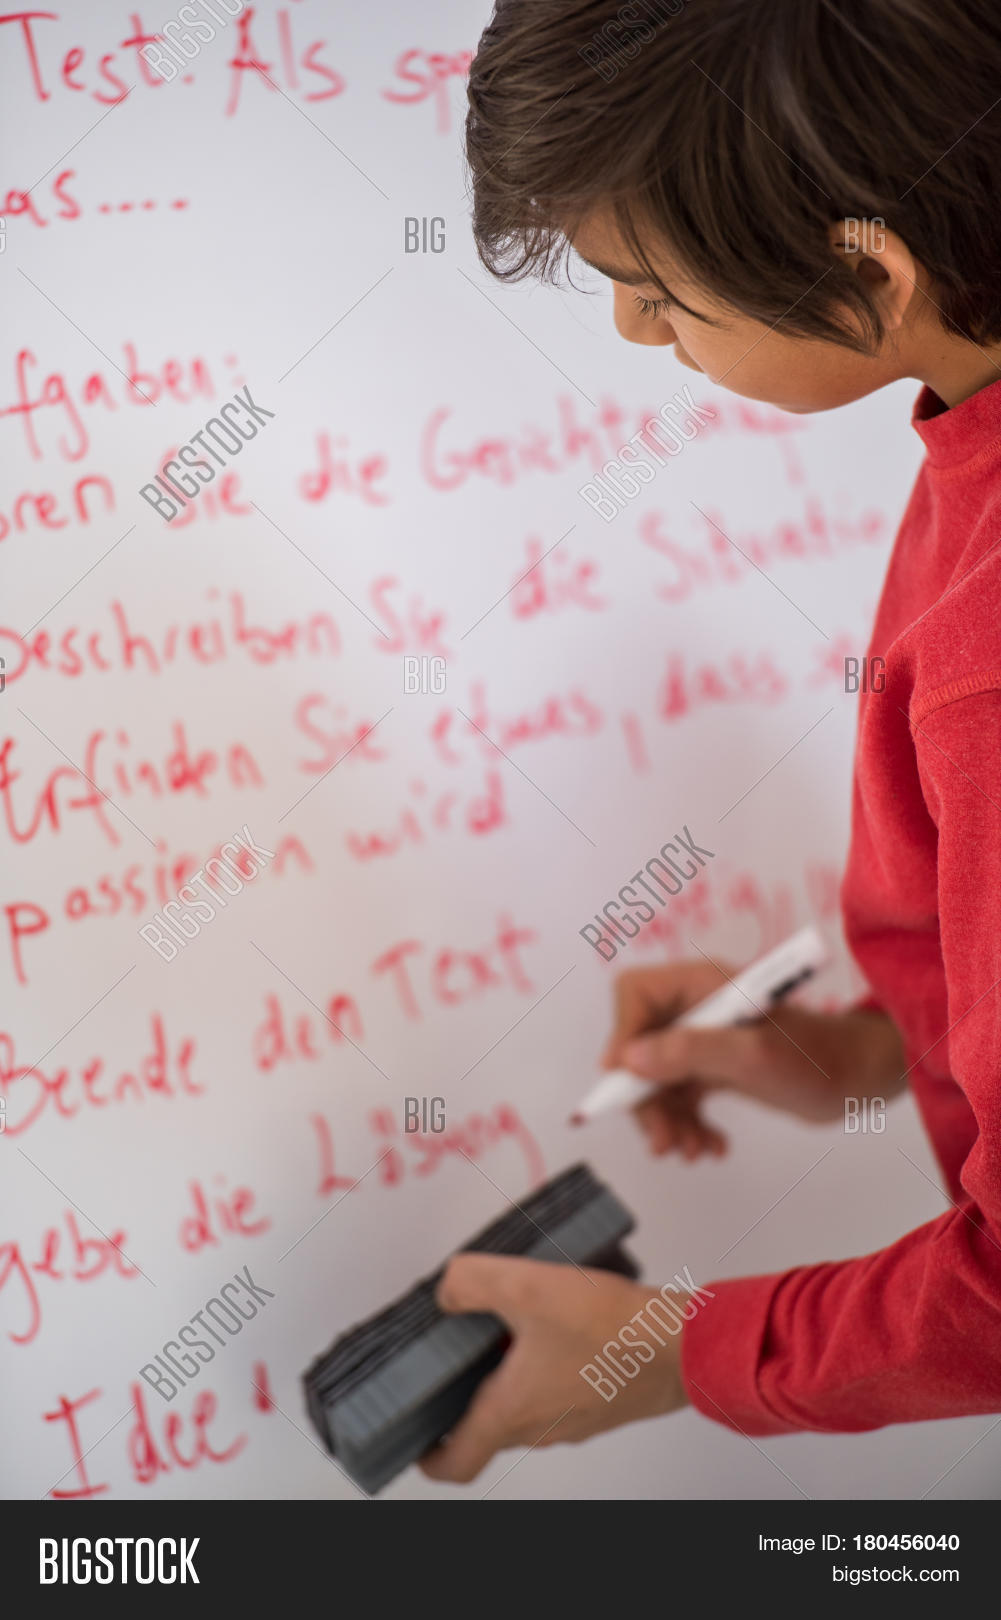 Test. Als
as....
fgaben:
oren Sie die
Beschreiben Sie die Situatio
Erfinden Sie etwas, dass
passieren wird
Beende den Text
gebe die Lösung
Idee
BIGSTOCK
Image ID: 180456040
bigstock.com